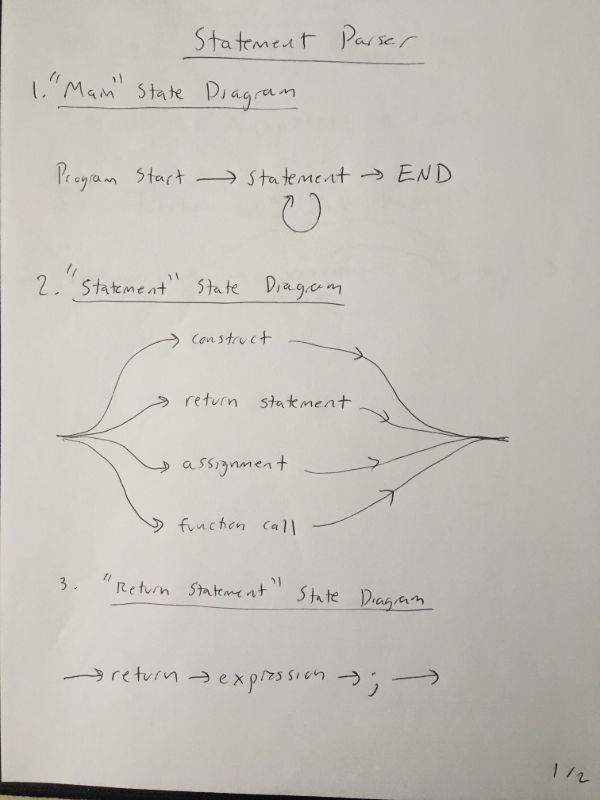 Statement Parser
1. "Main" State Diagram
Program Start → Statement → END
2. "Statement" State Diagram
construct
return statement
assignment
function call
3. "Return Statement" State Diagram
→ return → expression → ; →
1/2